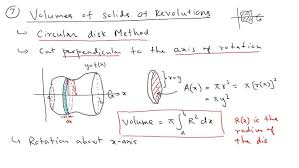 ⑨ Volumes of solids of Revolutions
↳ Circular disk Method
↳ Cut perpendicular to the axis of rotation
y=f(x)
r=y
A(x) = πr² = π[r(x)]²
= πy²
dx
Volume = π∫ₐᵇ R² dx
R(x) is the
radius of
the dis
↳ Rotation about x-axis